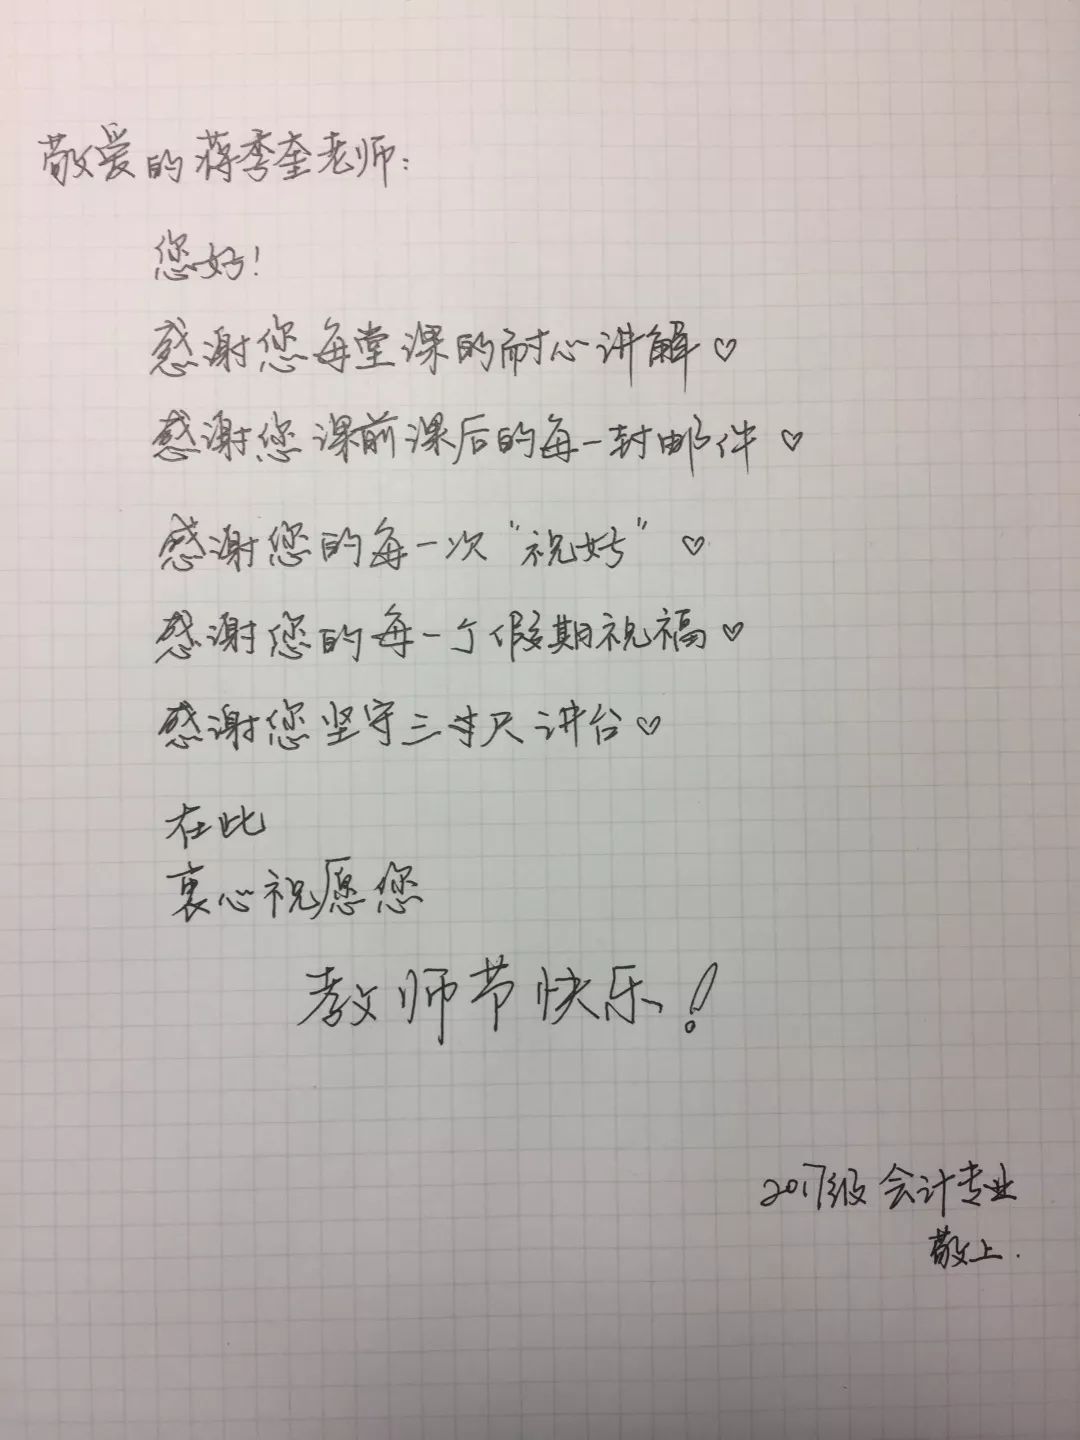 敬爱的蒋季奎老师：
您好！
感谢您每堂课的耐心讲解♡
感谢您课前课后的每一封邮件♡
感谢您的每一次“祝好”♡
感谢您的每一个假期祝福♡
感谢您坚守三寸尺讲台♡
在此
衷心祝愿您
教师节快乐！
2017级会计专业
敬上.